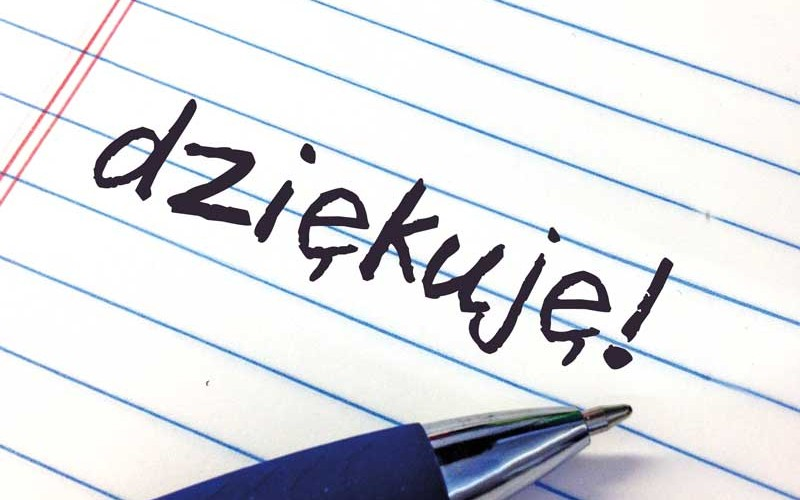 dziękuję!